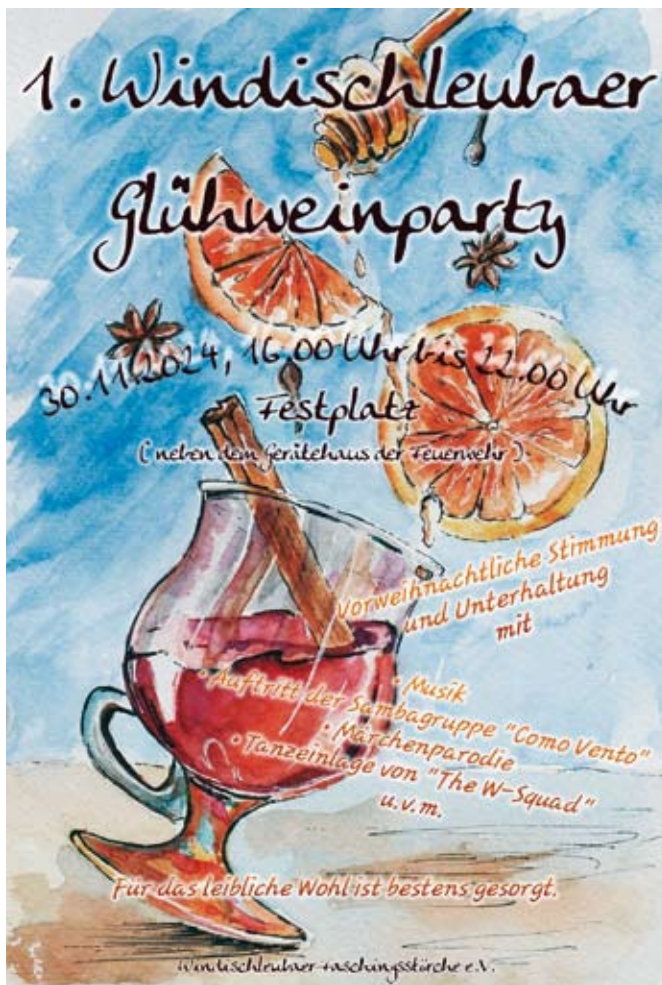 1. Windischleubaer
Glühweinparty
30.11.2024, 16.00 Uhr bis 22.00 Uhr
Festplatz
( neben dem Gerätehaus der Feuerwehr )
Vorweihnachtliche Stimmung
und Unterhaltung
mit
• Musik
• Auftritt der Sambagruppe "Como Vento"
• Märchenparodie
• Tanzeinlage von "The W-Squad"
u.v.m.
Für das leibliche Wohl ist bestens gesorgt.
Windischleubaer Faschingsstörche e.V.